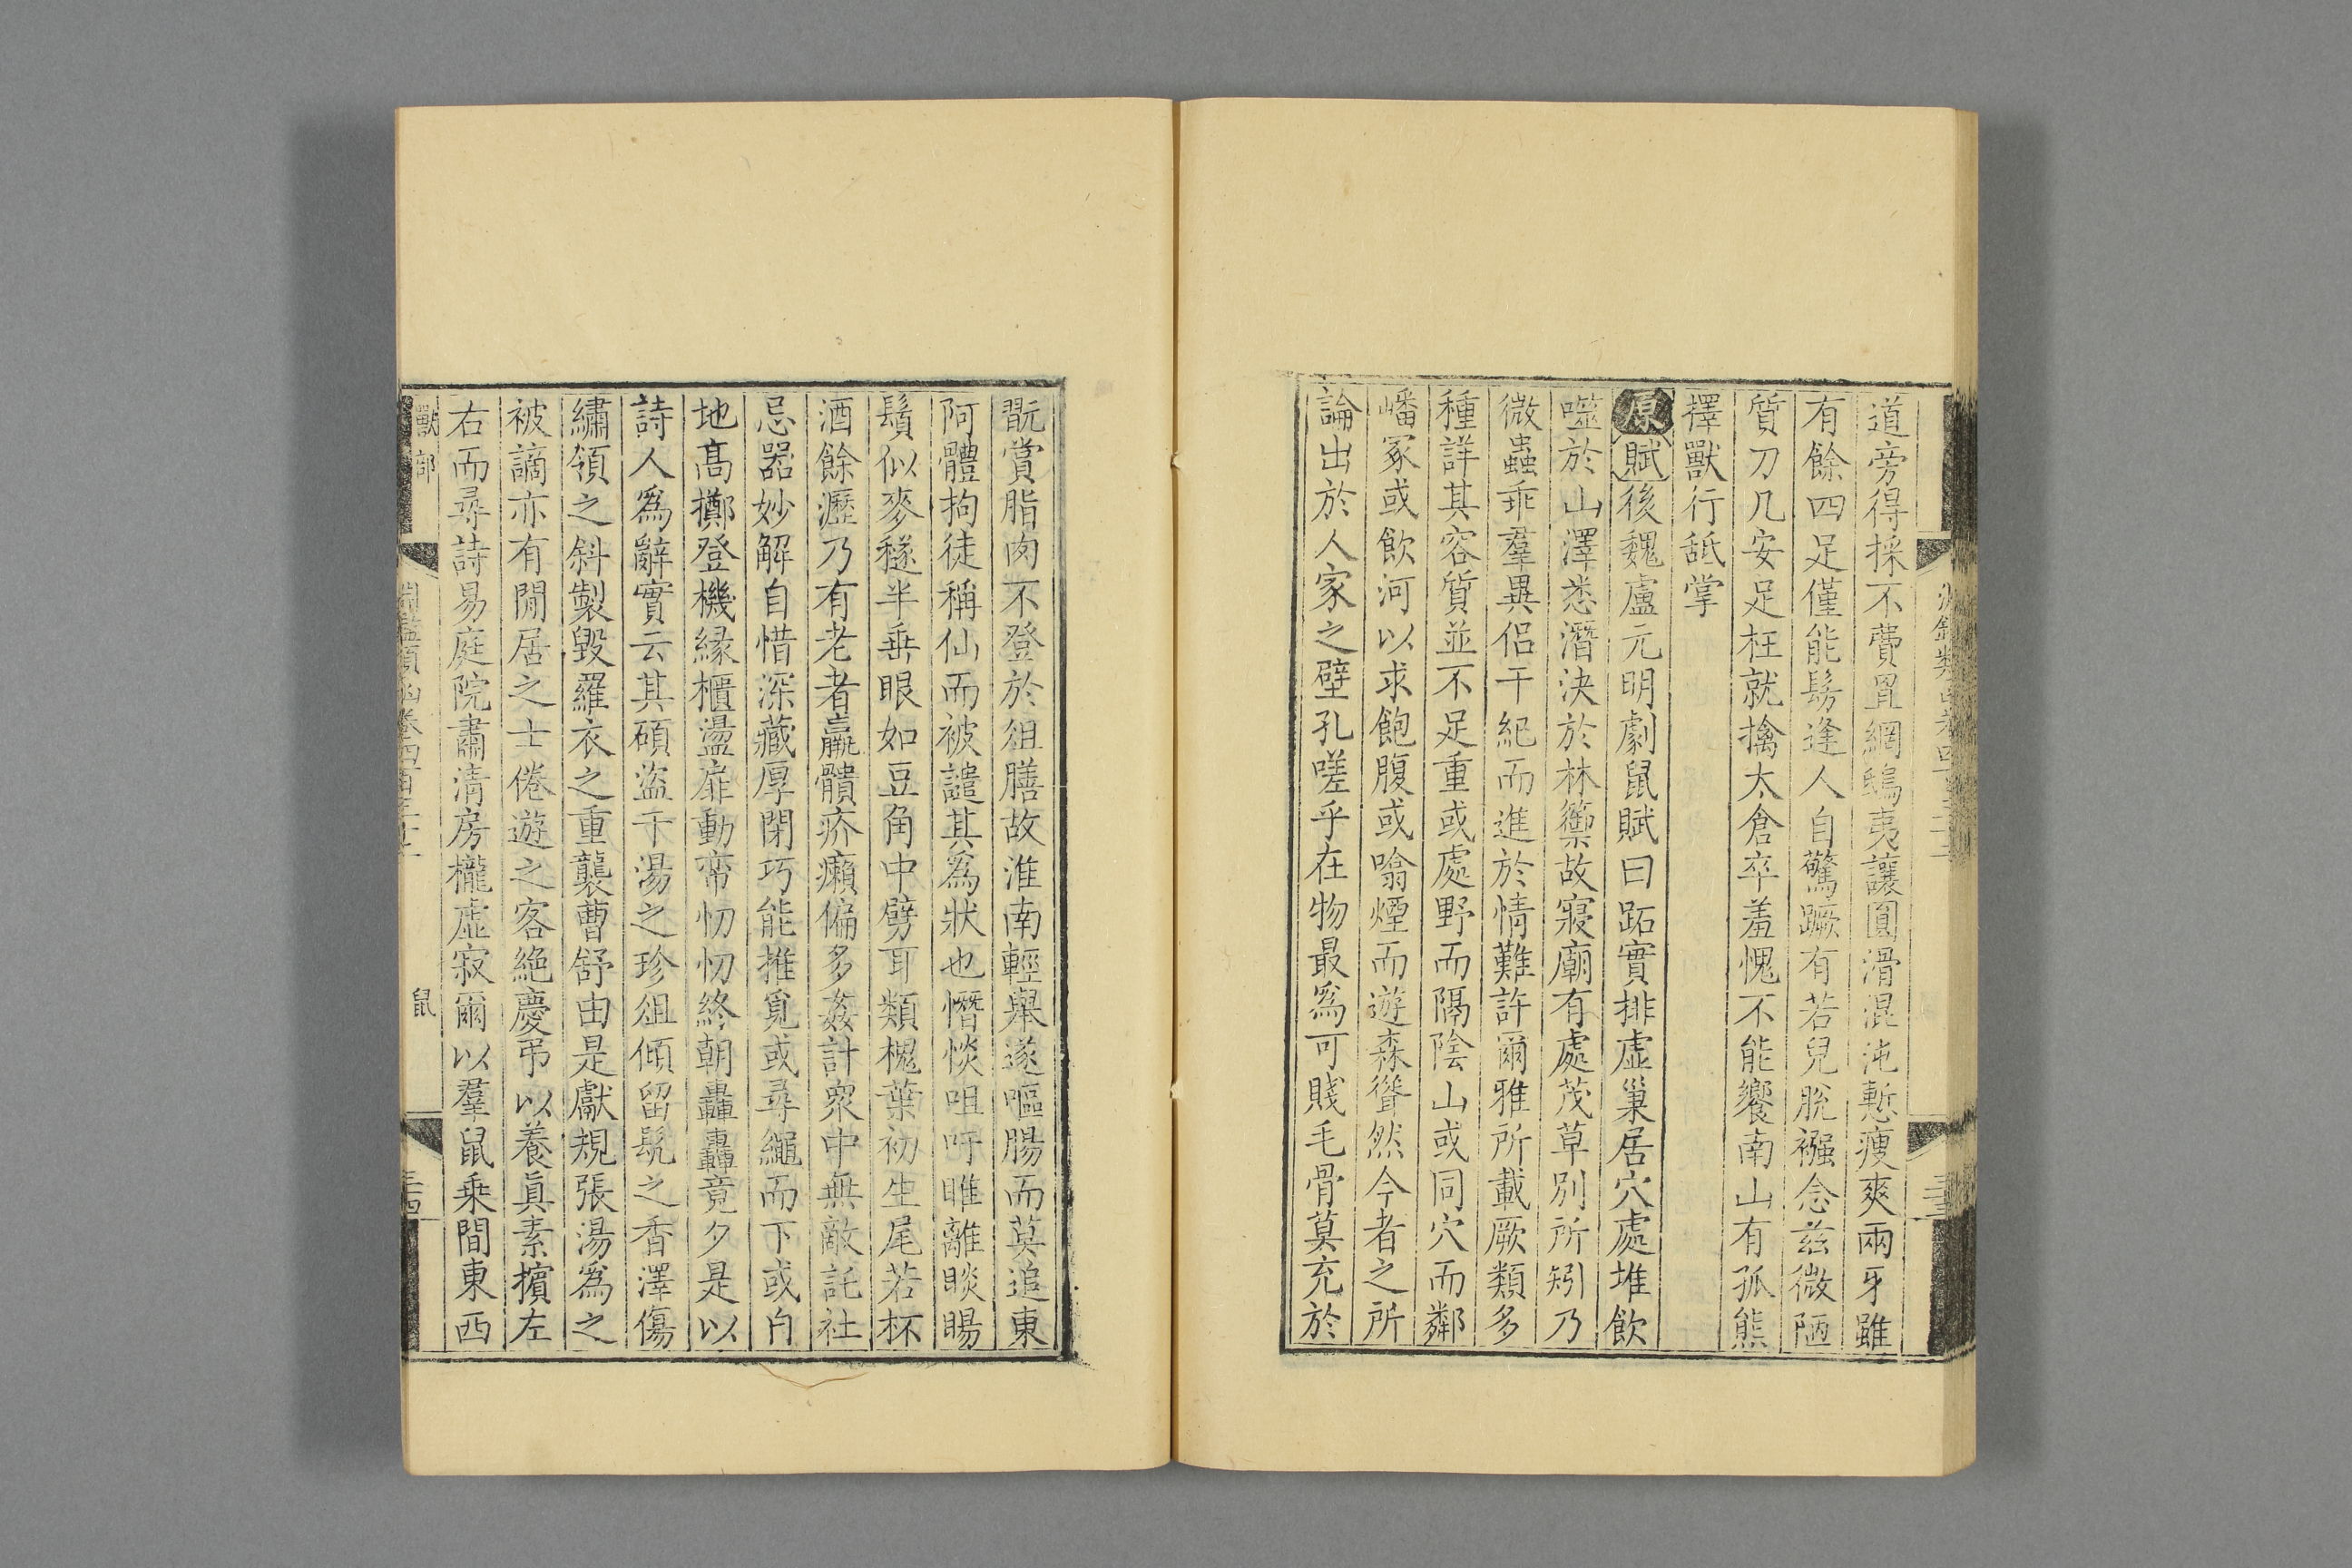 道旁得採不費罝網鴟夷讓圓滑混沌慙瘦爽兩牙雖
有餘四足僅能髣逢人自驚蹶有若兒脫襁念兹微陋
質刀几安足枉就擒太倉卒羞愧不能饗南山有孤熊
擇獸行舐掌
原賦後魏盧元明劇鼠賦曰跖實排虛巢居穴處堆飲
噬於山澤悉潛決於林籞故寢廟有處茂草別所矧乃
微蟲乖羣異侣干紀而進於情難許爾雅所載厥類多
種詳其容質並不足重或處野而隔陰山或同穴而鄰
嶓冢或飲河以求飽腹或噏煙而遊森聳然今者之所
論出於人家之壁孔嗟乎在物最爲可賤毛骨莫充於
翫賞脂肉不登於俎膳故淮南輕舉遂嘔腸而莫追東
阿體拘徒稱仙而被譴其爲狀也憯惔咀吁睢離睒睗
鬚似麥穟半垂眼如豆角中劈耳類槐葉初生尾若杯
酒餘瀝乃有老者羸髖疥癩偏多姦計衆中無敵託社
忌器妙解自惜深藏厚閉巧能推覓或尋繩而下或自
地高擲登機緣櫃盪扉動帘忉忉終朝轟轟竟夕是以
詩人爲辭實云其碩盜干湯之珍俎傾留髡之香澤傷
繡領之斜製毀羅衣之重襲曹舒由是獻規張湯爲之
被謫亦有閒居之士倦遊之客絶慶弔以養眞素擯左
右而尋詩易庭院肅清房櫳虛寂爾以羣鼠乗間東西
獸部
淵鑑類函卷四百三十二
鼠
三十四